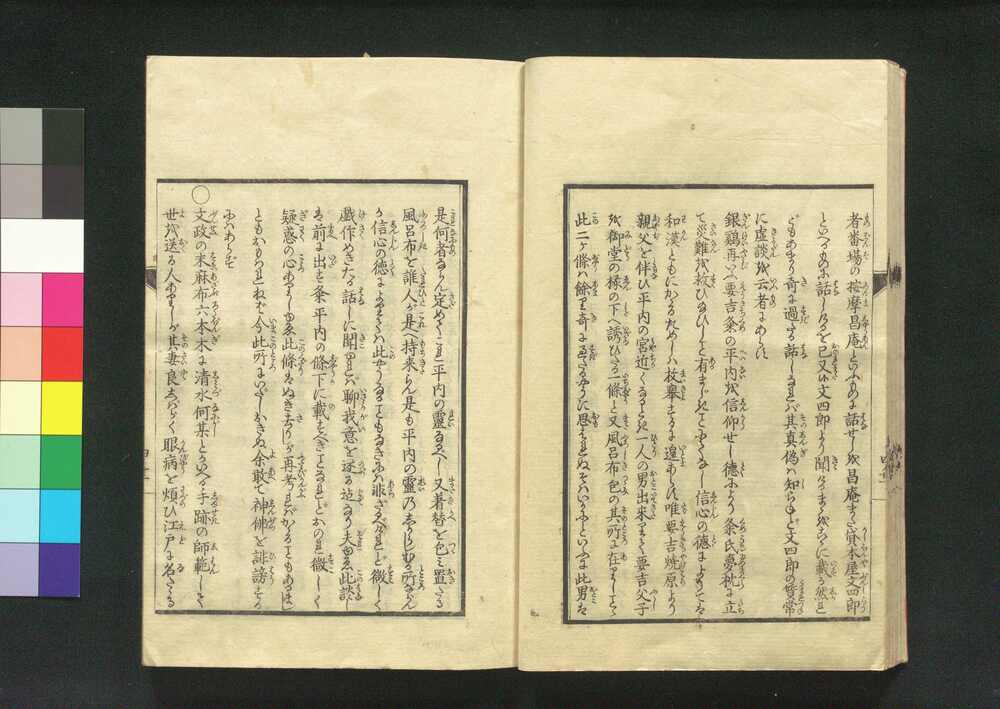 者番場の按摩昌庵といふものに話せしを昌庵また貸本屋文四郎
といへるものに話しけるを己又文四郎より聞けるまゝをこゝに載る然れ
どもあまり奇に過たる話しなれバ其真偽ハ知らねど文四郎ハ質常
に虚談を云者にあらず
銀鶏再いふ要吉粂の平内を信仰せし徳により粂氏夢枕に立
て災難を救ひ給ひしこと有まじきことゝもいふべからず信心の徳によりては
和漢ともにかゝるためしハ枚挙するに遑あらず唯要吉焼原より
親父を伴ひ平内の宮近くなるとき一人の男出来りて要吉父子
を御堂の椽の下へ誘ひたる一條と又風呂布包の其所に在りしこと
此二ヶ條ハ餘り奇に過たるやうに思はるれどいかにといふに此男を
是何者ならん定めてこれ平内の靈なるべし又着替を包ミ置たる
風呂布を誰人が是へ持来らん是も平内の靈のしからしむる所ならん
か信心の徳によりてハ此やうなることもなきにハ非ざるべけれど微しく
戯作めきたる話しに聞ゆれバ聊我意を述る迄なり夫ゆゑ此談し
ハ前に出す粂平内の條下に載すべきことなれどおのれ微しく
疑惑の心ありしゆゑ此條をぬきさりしが再考すればかゝることもあるまじ
ともおもはれねば今此所にいだしおきぬ余敢て神佛を誹謗する
にハあらず
○文政の末麻布六本木に清水何某といへる手跡の師範して
世を送る人ありしが其妻良しばらく眼病を煩ひ江戸に名たゝる